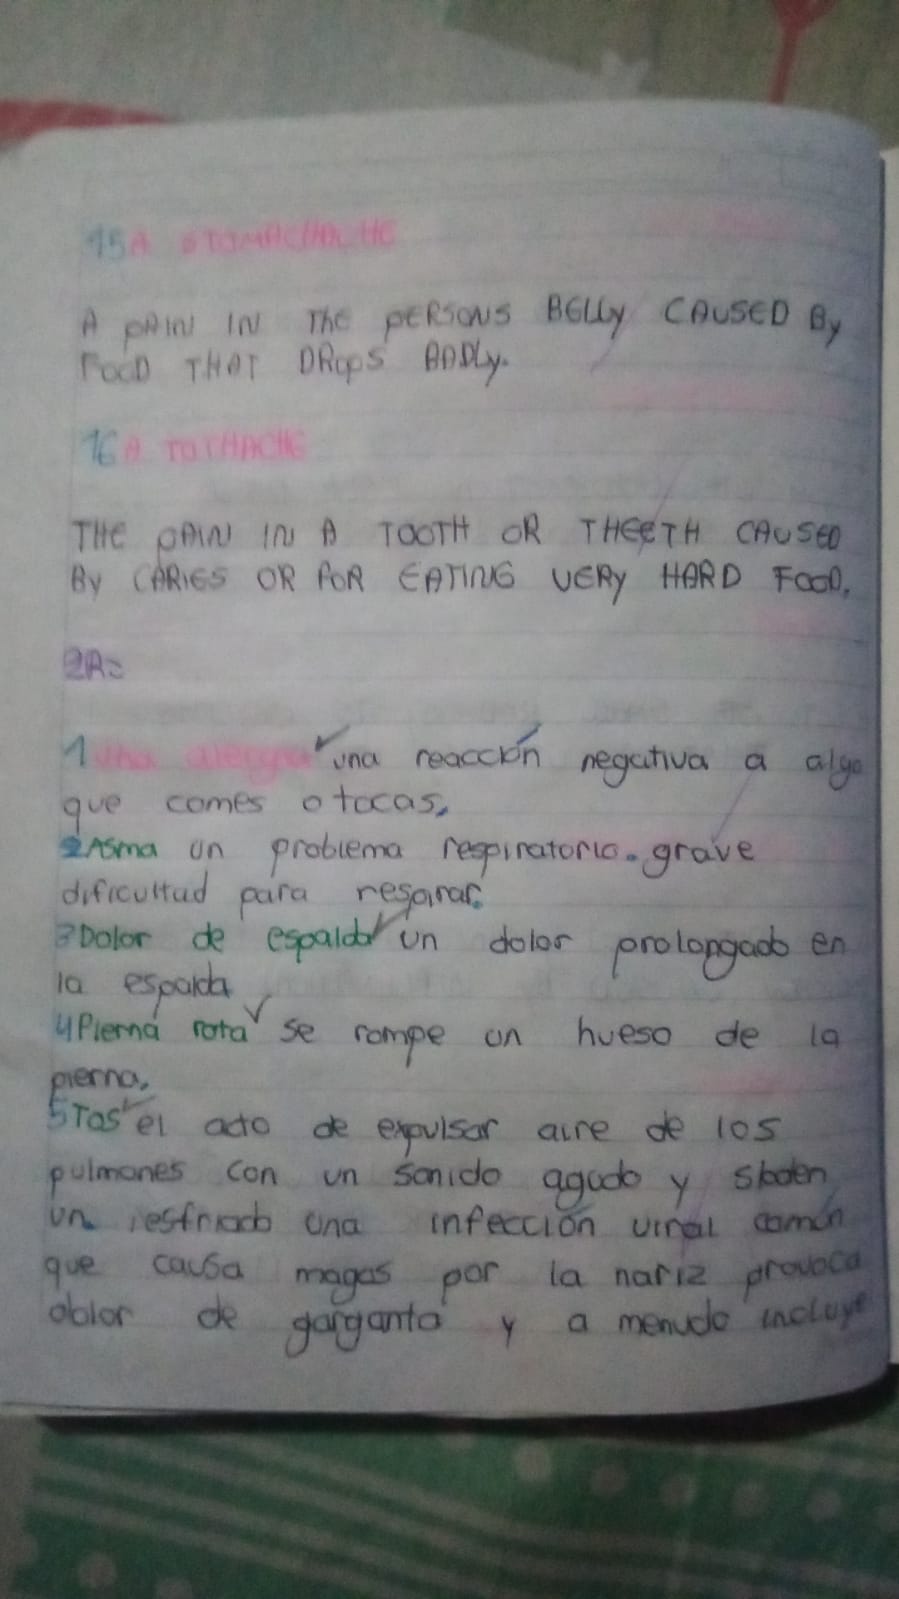 15A STOMACHACHE
A PAIN IN THE PERSONS BELLY CAUSED BY
FOOD THAT DROPS BADLY.
16A TOCHACHE
THE PAIN IN A TOOTH OR THEETH CAUSED
BY CARIES OR FOR EATING VERY HARD FOOD.
2R=
1 una alergia una reacción negativa a algo
que comes o tocas.
2Asma un problema respiratorio. grave
dificultad para respirar.
3Dolor de espalda un dolor prolongado en
la espalda
4Pierna rota se rompe un hueso de la
pierna,
5Tos el acto de expulsar aire de los
pulmones con un sonido agudo y
un resfriado una infección viral común
que causa magas por la nariz provoca
dolor de garganta y a menudo incluye